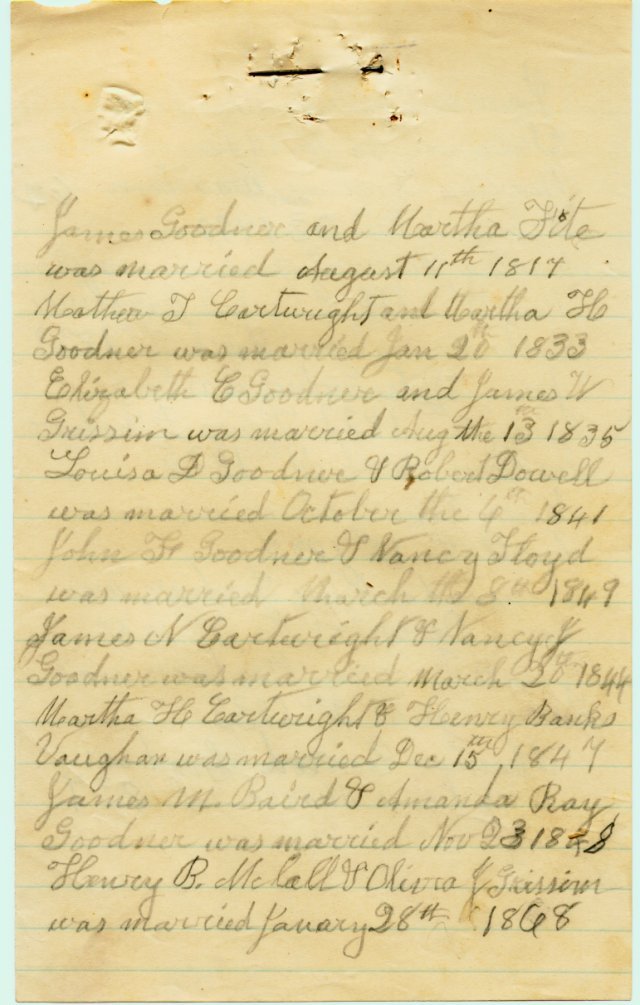 James Goodner and Martha Fite
was married August 11th 1817
Mathew T Cartwright and Martha H
Goodner was married Jan 20th 1833
Elizabeth C Goodner and James W
Grissim was married Aug the 13th 1835
Louisa D Goodner & Robert Dowell
was married October the 6th 1841
John F Goodner & Nancy Floyd
was married March the 8th 1849
James N Cartwright & Nancy J
Goodner was married March 20th 1844
Martha H Cartwright & Henry Banks
Vaughan was married Dec 15th 1847
James M. Baird & Amanda Ray
Goodner was married Nov 23
Henry B. McCall & Olivia J Grissim
was married January 28th 1868